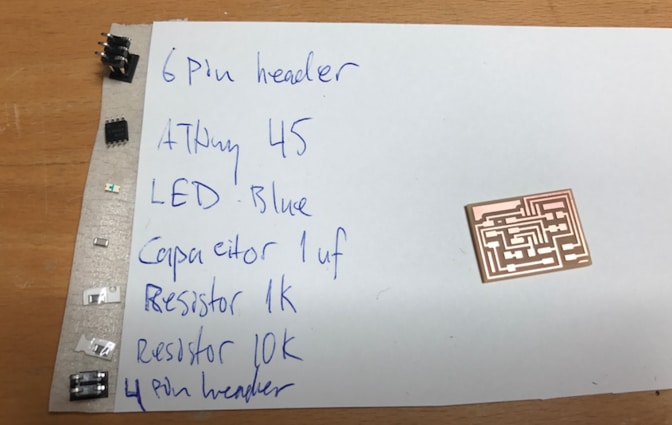 6 Pin header
ATtiny 45
LED Blue
Capacitor 1 uf
Resistor 1K
Resistor 10K
4 pin header